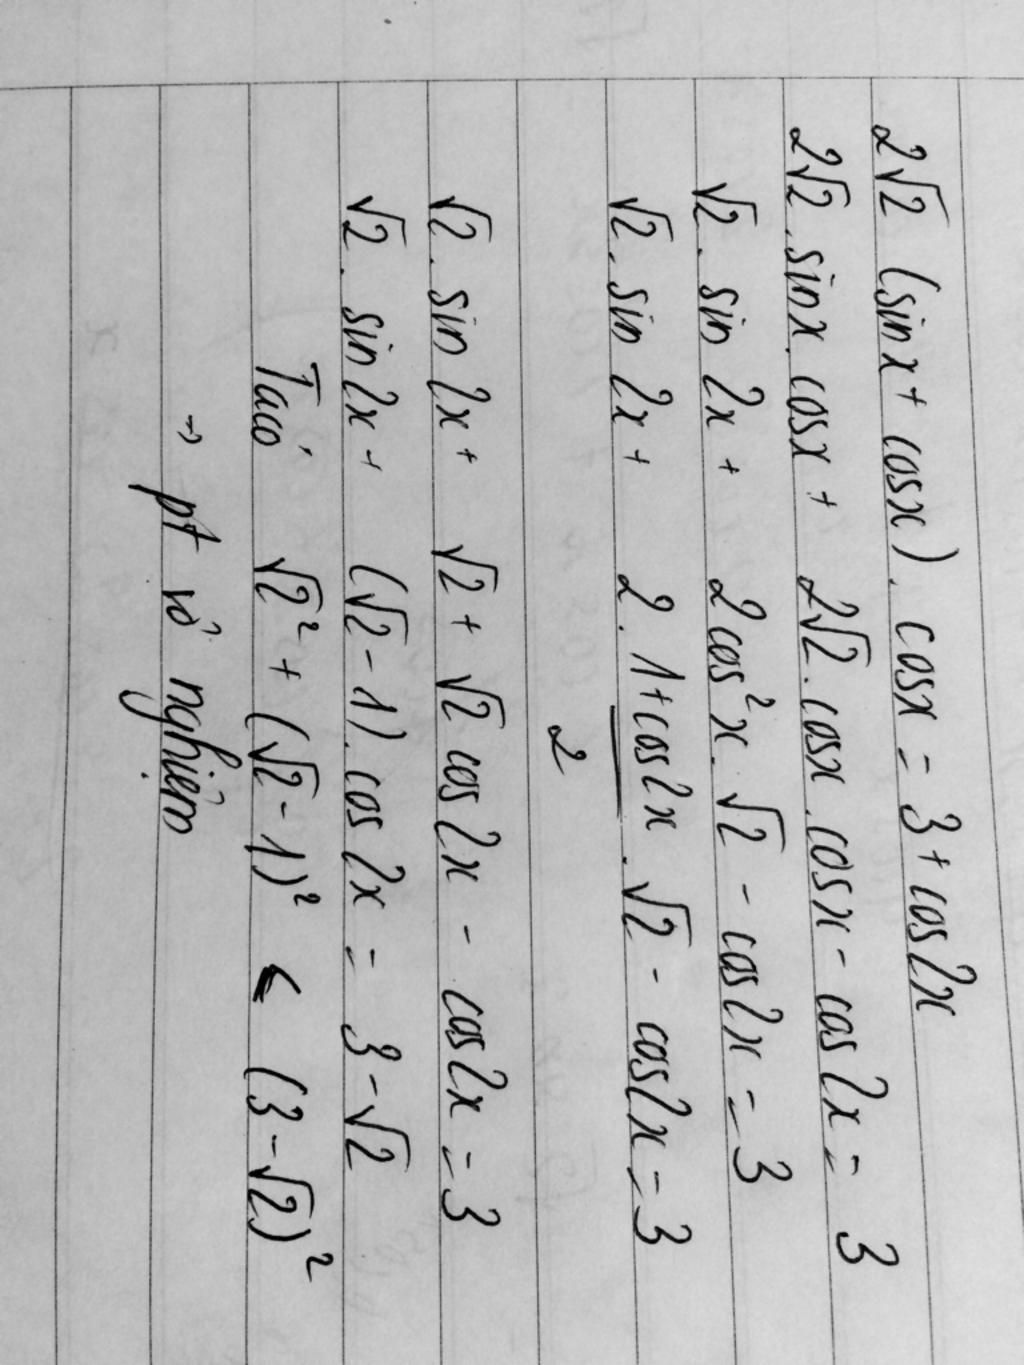 2√2 (sinx + cosx). cosx = 3 + cos2x
2√2. sinx. cosx + 2√2. cosx. cosx - cos2x = 3
√2. sin2x + 2cos²x. √2 - cos2x = 3
√2. sin2x + 2. (1+cos2x)/2 . √2 - cos2x = 3
√2. sin2x + √2 + √2 cos2x - cos2x = 3
√2. sin2x + (√2 - 1). cos2x = 3 - √2
Ta có √2² + (√2 - 1)² < (3 - √2)²
→ pt vô nghiệm